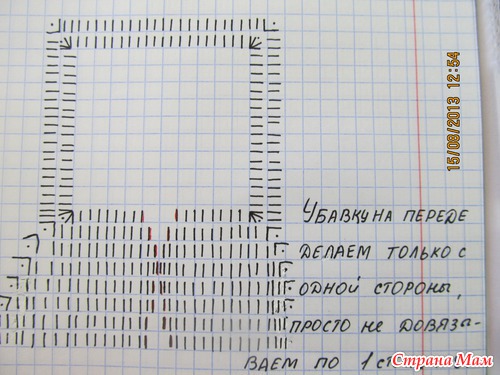 15/08/2013 12:54
Убавку на переде
делаем только с
одной стороны,
просто не довяза-
ваем по 1 ст
Страна Мам